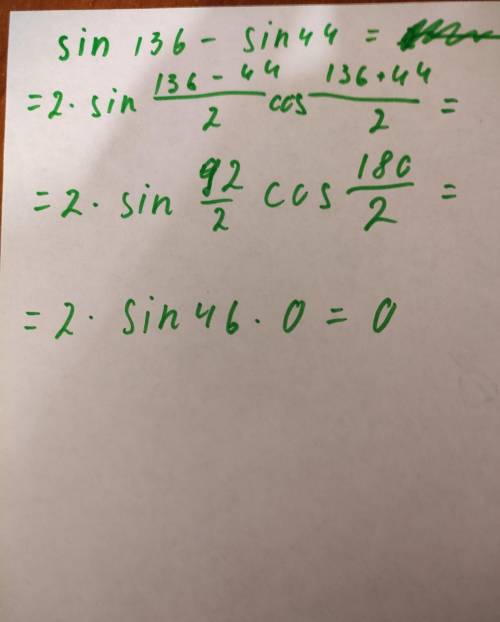 sin 136 - sin 44 =
= 2 · sin (136 - 44)/2 cos (136 + 44)/2 =
= 2 · sin 92/2 cos 180/2 =
= 2 · sin 46 · 0 = 0